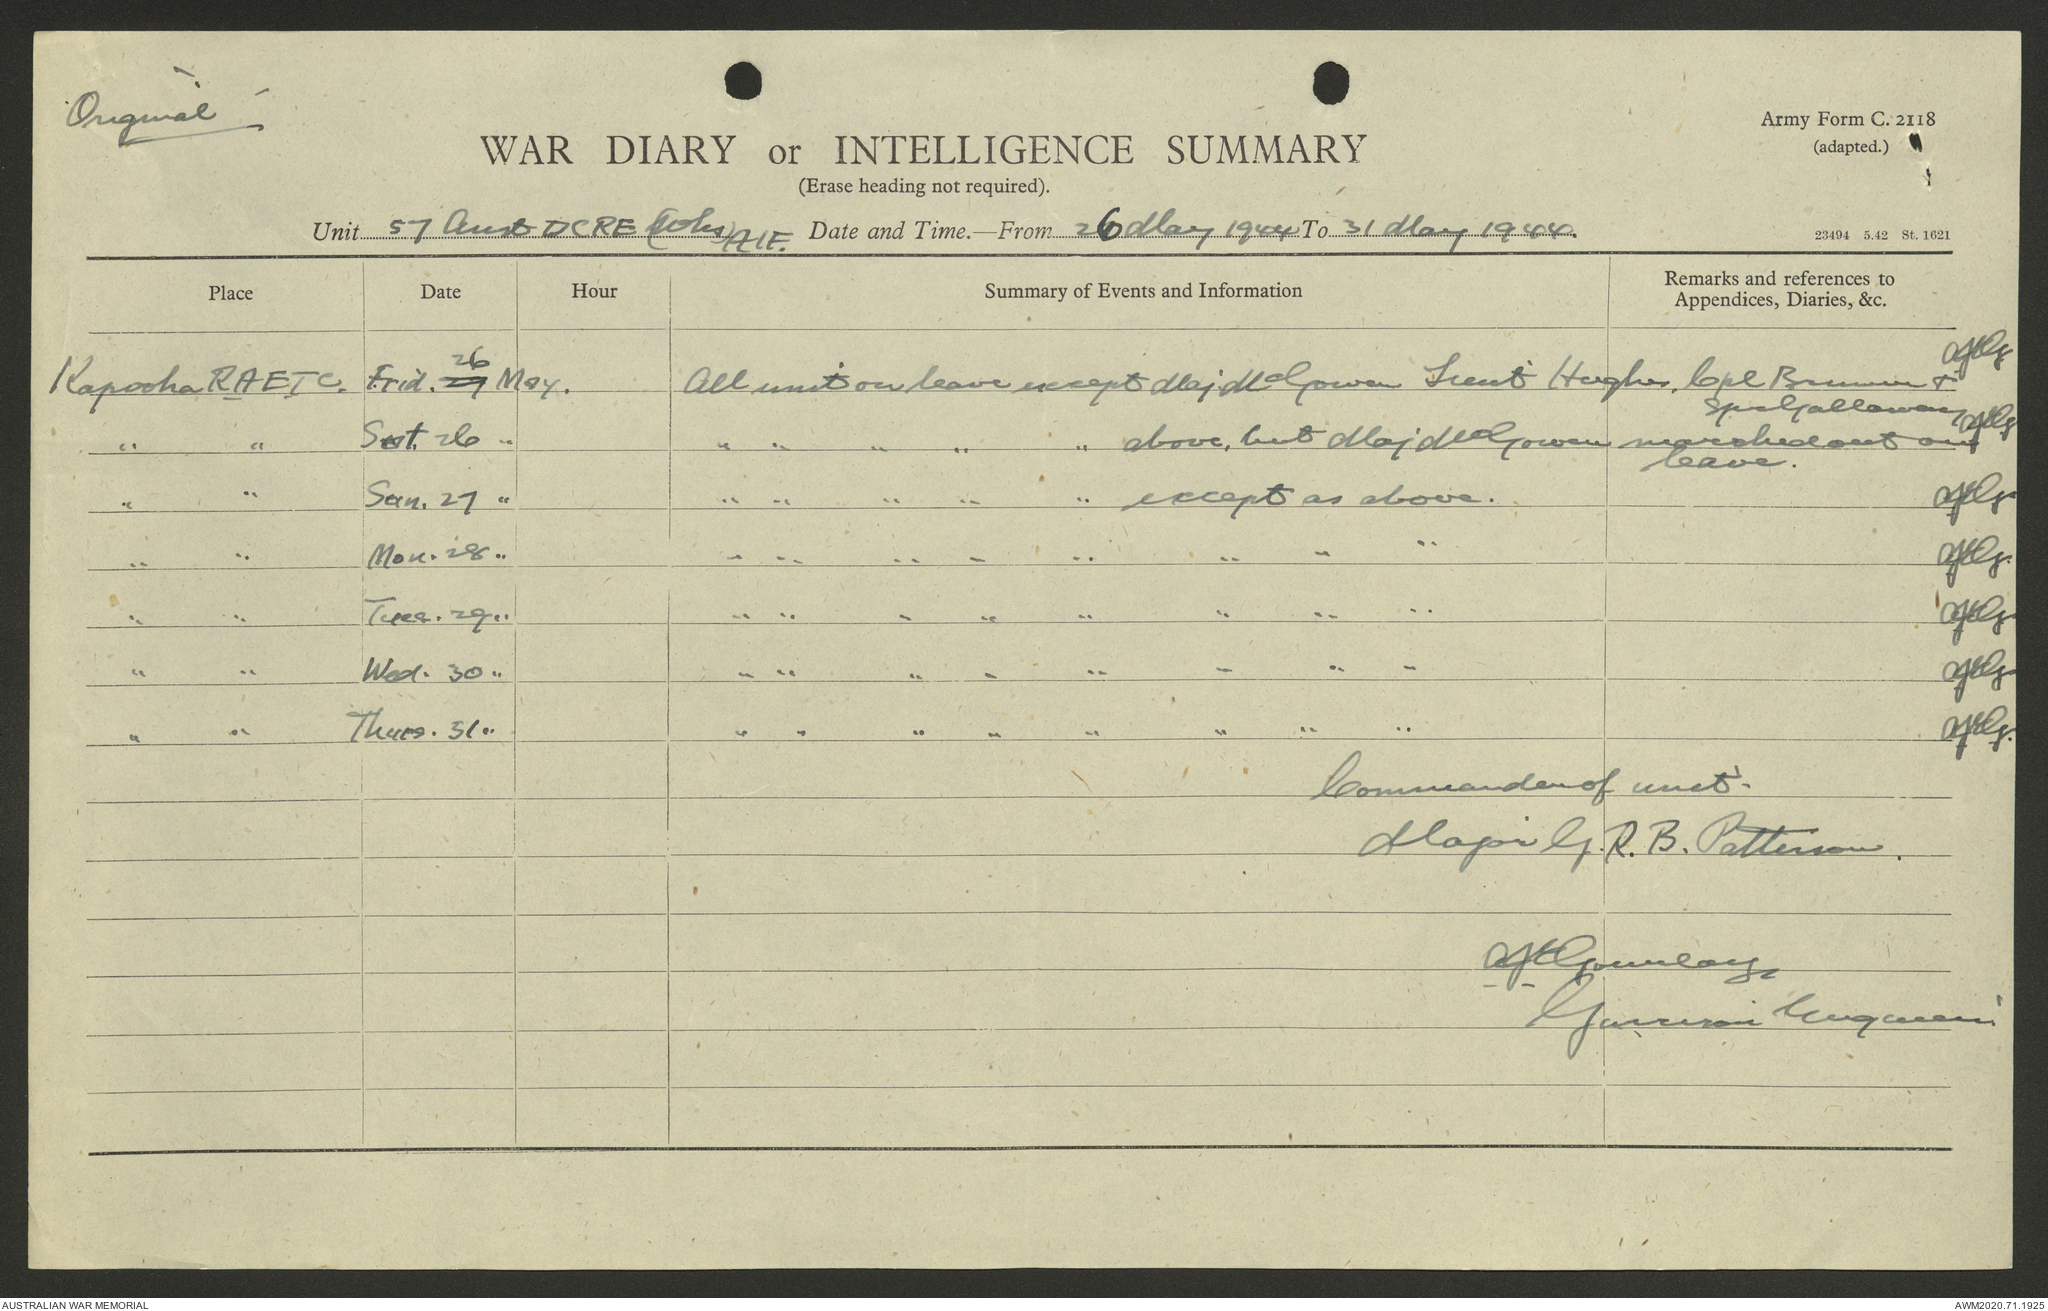 Original
Army Form C. 2118
(adapted.)
WAR DIARY or INTELLIGENCE SUMMARY
(Erase heading not required).
Unit 57 Aust DCRE (Wks) AIF. Date and Time.—From 26 May 1944 To 31 May 1944.
23494 5.42 St. 1621
Place Date Hour Summary of Events and Information Remarks and references to
Appendices, Diaries, &c.
Kapooka RAETC. Frid. 27 26 May. All unit on leave except Maj McGowen Lieut Hughes, Cpl Brunn +
Spr Galloway
" " Sat. 26 " " " " " " above, but Maj McGowen marched out on
leave.
" " Sun. 27 " " " " " " except as above.
" " Mon. 28 " " " " " " " " "
" " Tues. 29 " " " " " " " " "
" " Wed. 30 " " " " " " " " "
" " Thurs. 31 " " " " " " " " "
Commander of unit.
Major G. R. B. Patterson.
Gourlay
Garrison Engineer
AUSTRALIAN WAR MEMORIAL
AWM2020.71.1925